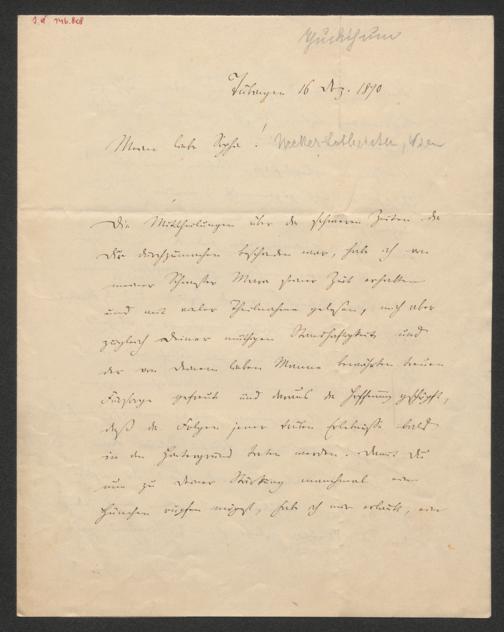 I.N. 146.808
Tübingen 16 Dez. 1890
Meine liebe Sophie!
Die Mittheilungen über die schweren Zeiten die
Dir durchzumachen beschieden war, habe ich von
meiner Schwester Mara seiner Zeit erhalten
und mit vieler Theilnahme gelesen, mich aber
zugleich Deiner muthigen Standhaftigkeit und
der von Deinem lieben Manne bewährten treuen
Fürsorge gefreut und daraus die Hoffnung geschöpft,
daß die Folgen jener trüben Erlebnisse bald
in den Hintergrund treten werden. Damit Du
nun zu Deiner Stärkung manchmal ein
Hünchen rupfen mögest, habe ich mir erlaubt, ein